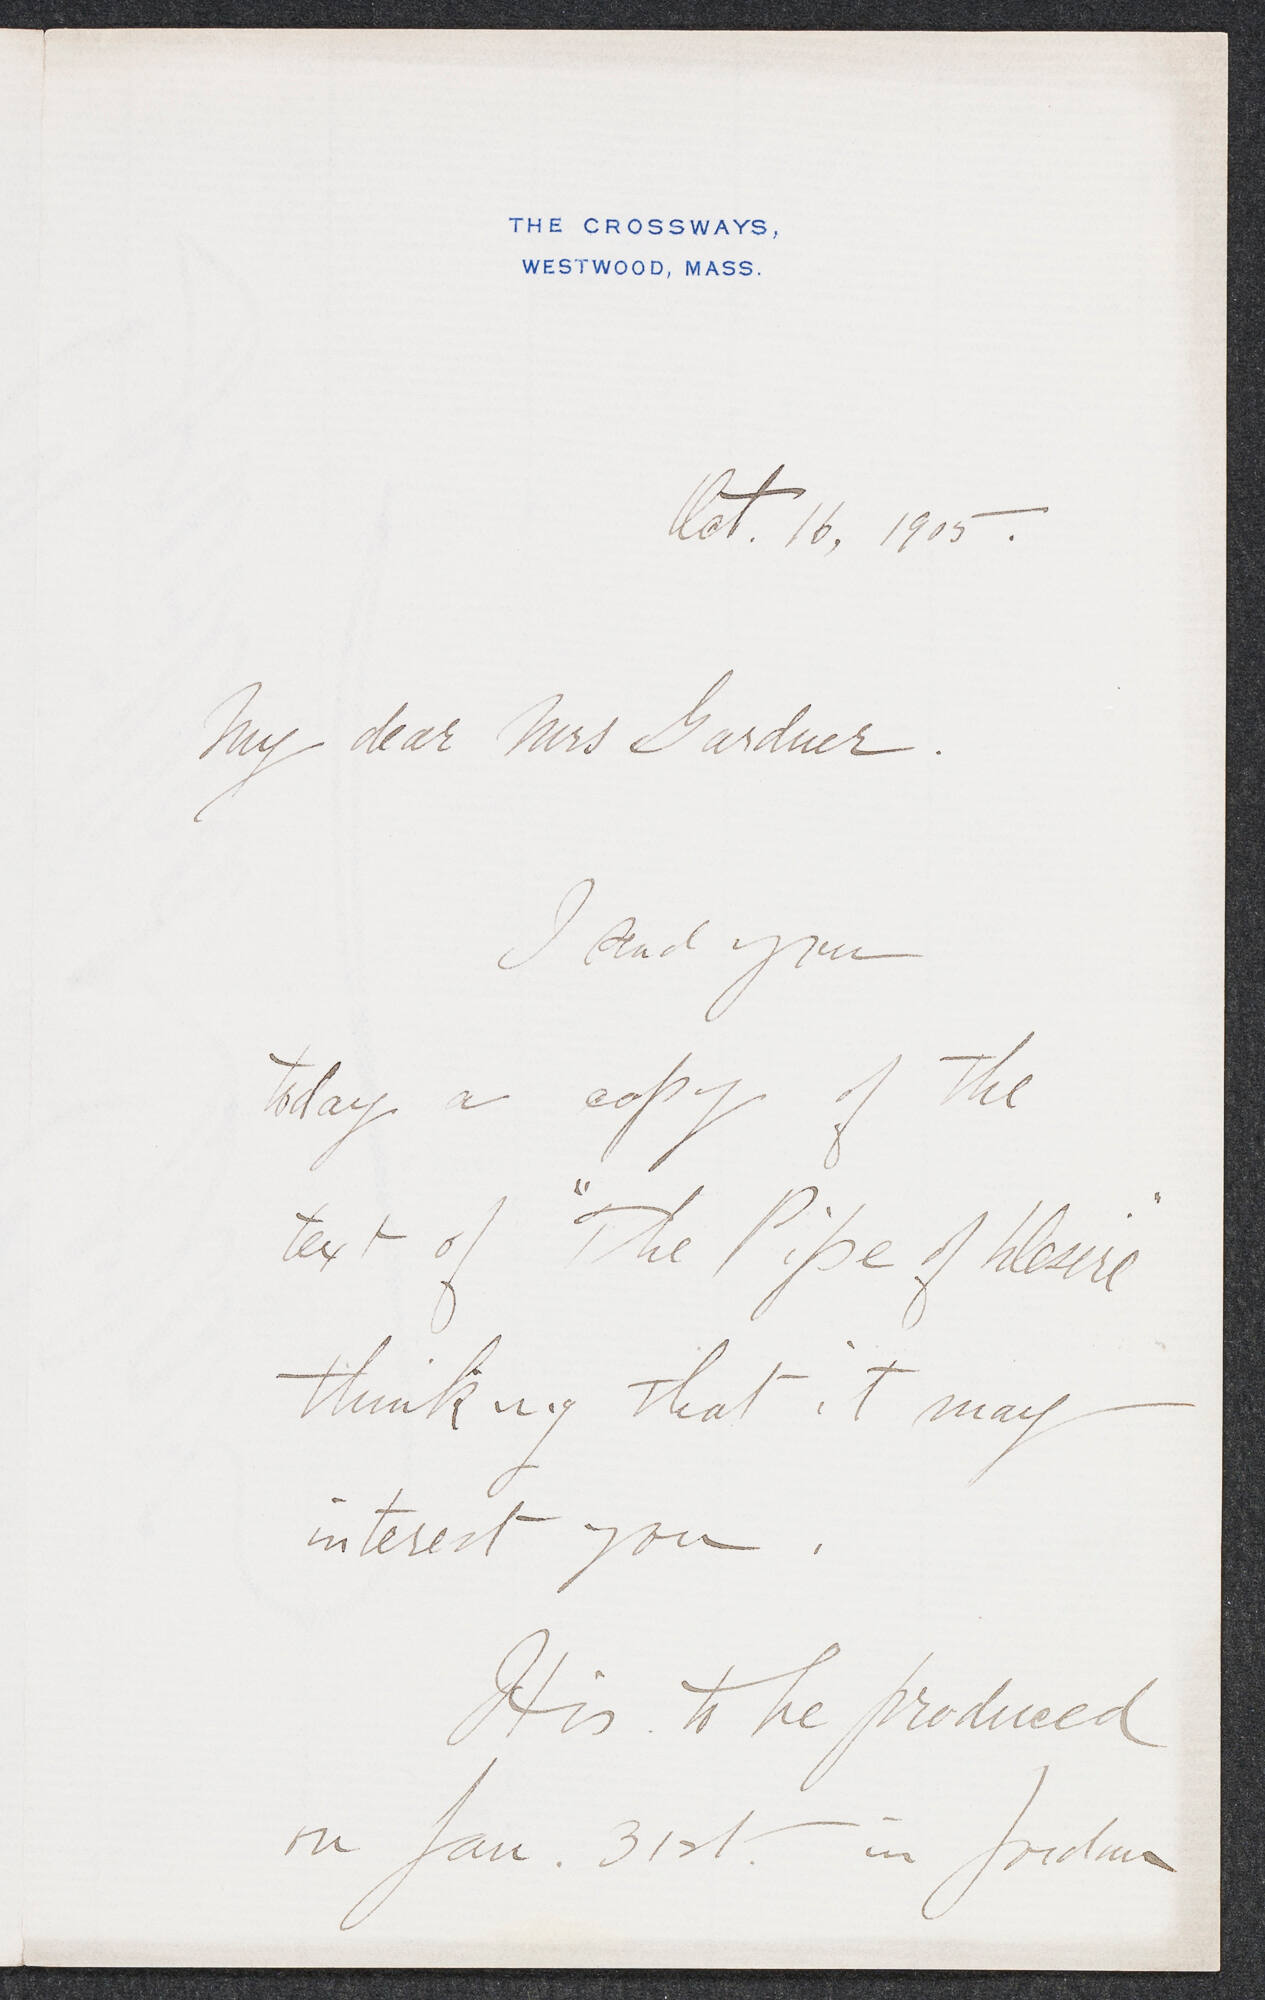 THE CROSSWAYS,
WESTWOOD, MASS.
Oct. 16, 1905.
My dear Mrs Gardner.
I send you
today a copy of the
text of "The Pipe of Desire"
thinking that it may
interest you.
It is to be produced
on Jan. 31st. in Jordan